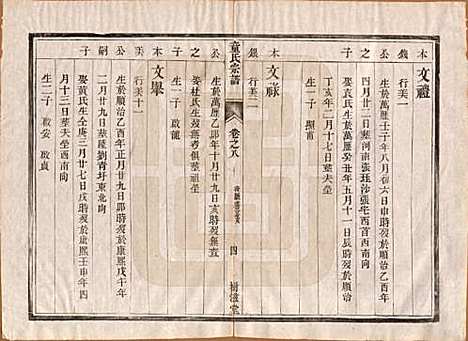 本 文禮
錢 行美一
公 生於萬曆壬子年八月初六日申時歿於順治乙酉年
之 四月廿二日葬河南張珏沙張宅西首西南向
子 娶袁氏生於萬曆癸丑年五月十一日辰時歿於順治
丁亥年二月十七日葬夫塋
生一子 顯甫
本 文祿
銀 行美二
公 生於萬曆乙卯年十月廿九日亥時歿無查
之 娶杜氏生歿無考俱葬祖塋
子 生一子 啟龍
童氏宗譜
卷之八
四
樹滋堂
文舉
美 行美十一
公 生於順治乙酉年正月廿九日卯時歿於康熙戊午年
嗣 二月廿九日葬陵劉青圩東北向
子 娶黃氏生仝庚三月廿七日戌時歿於康熙壬申年四
月十三日葬夫塋酉南向
生二子 啟安 啟貞